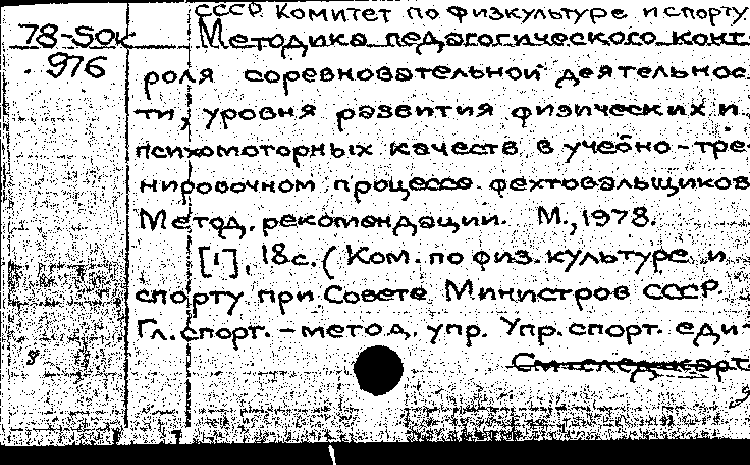 СССР. Комитет по физкультуре и спорту.
78-50к Методика педагогического конт-
976 роля соревновательной деятельнос-
ти, уровня развития физических и
психомоторных качеств в учебно-тре-
нировочном процессе фехтовальщиков.
Метод. рекомендации. М., 1978.
[1], 18с. (Ком. по физ. культуре и
спорту при Совете Министров СССР.
Гл. спорт.-метод. упр. Упр. спорт. еди-
См. след. карт